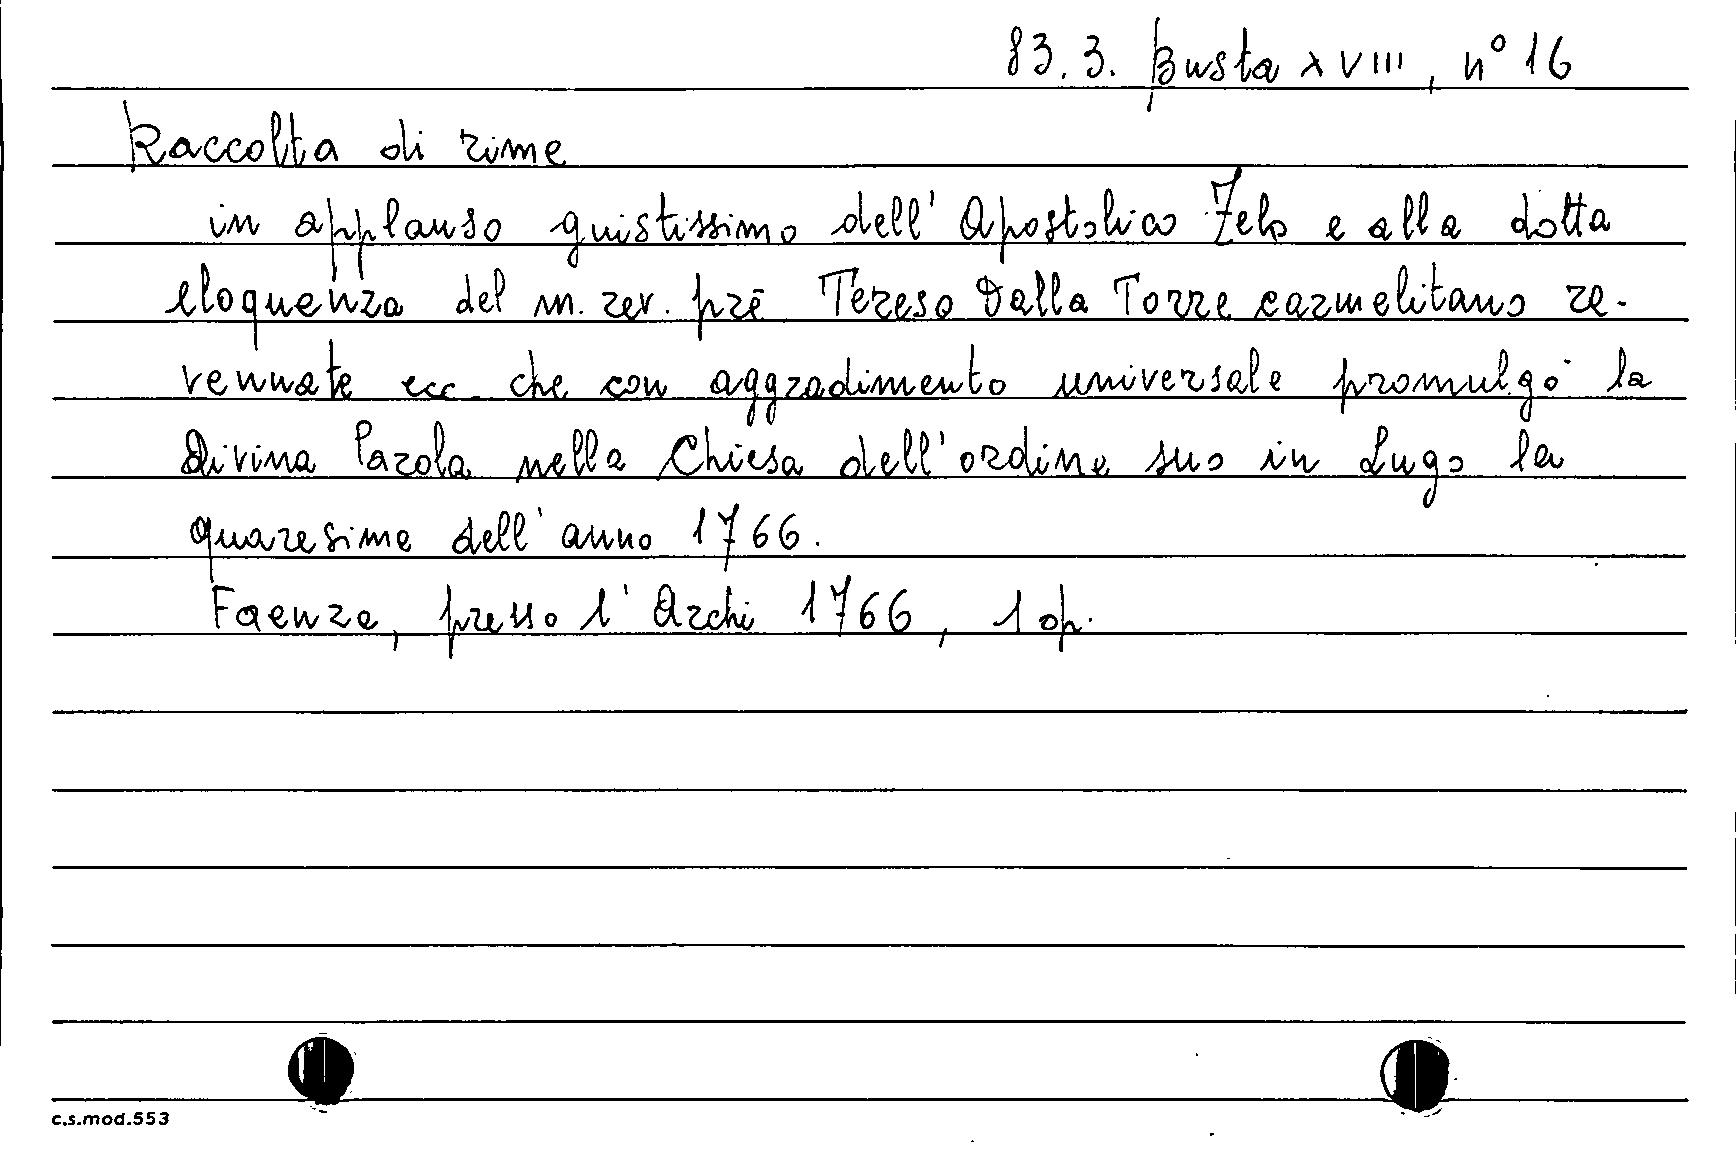 83.3. Busta XVIII, n° 16
Raccolta di rime
in applauso giustissimo dell'Apostolico Zelo e alla dotta
eloquenza del m. rev. prē Tereso Dalla Torre carmelitano ra-
vennate ecc. che con aggradimento universale promulgò la
Divina Parola nella Chiesa dell'ordine suo in Lugo la
quaresima dell'anno 1766.
Faenza, presso l'Archi 1766, 1 op.
c.s.mod.553